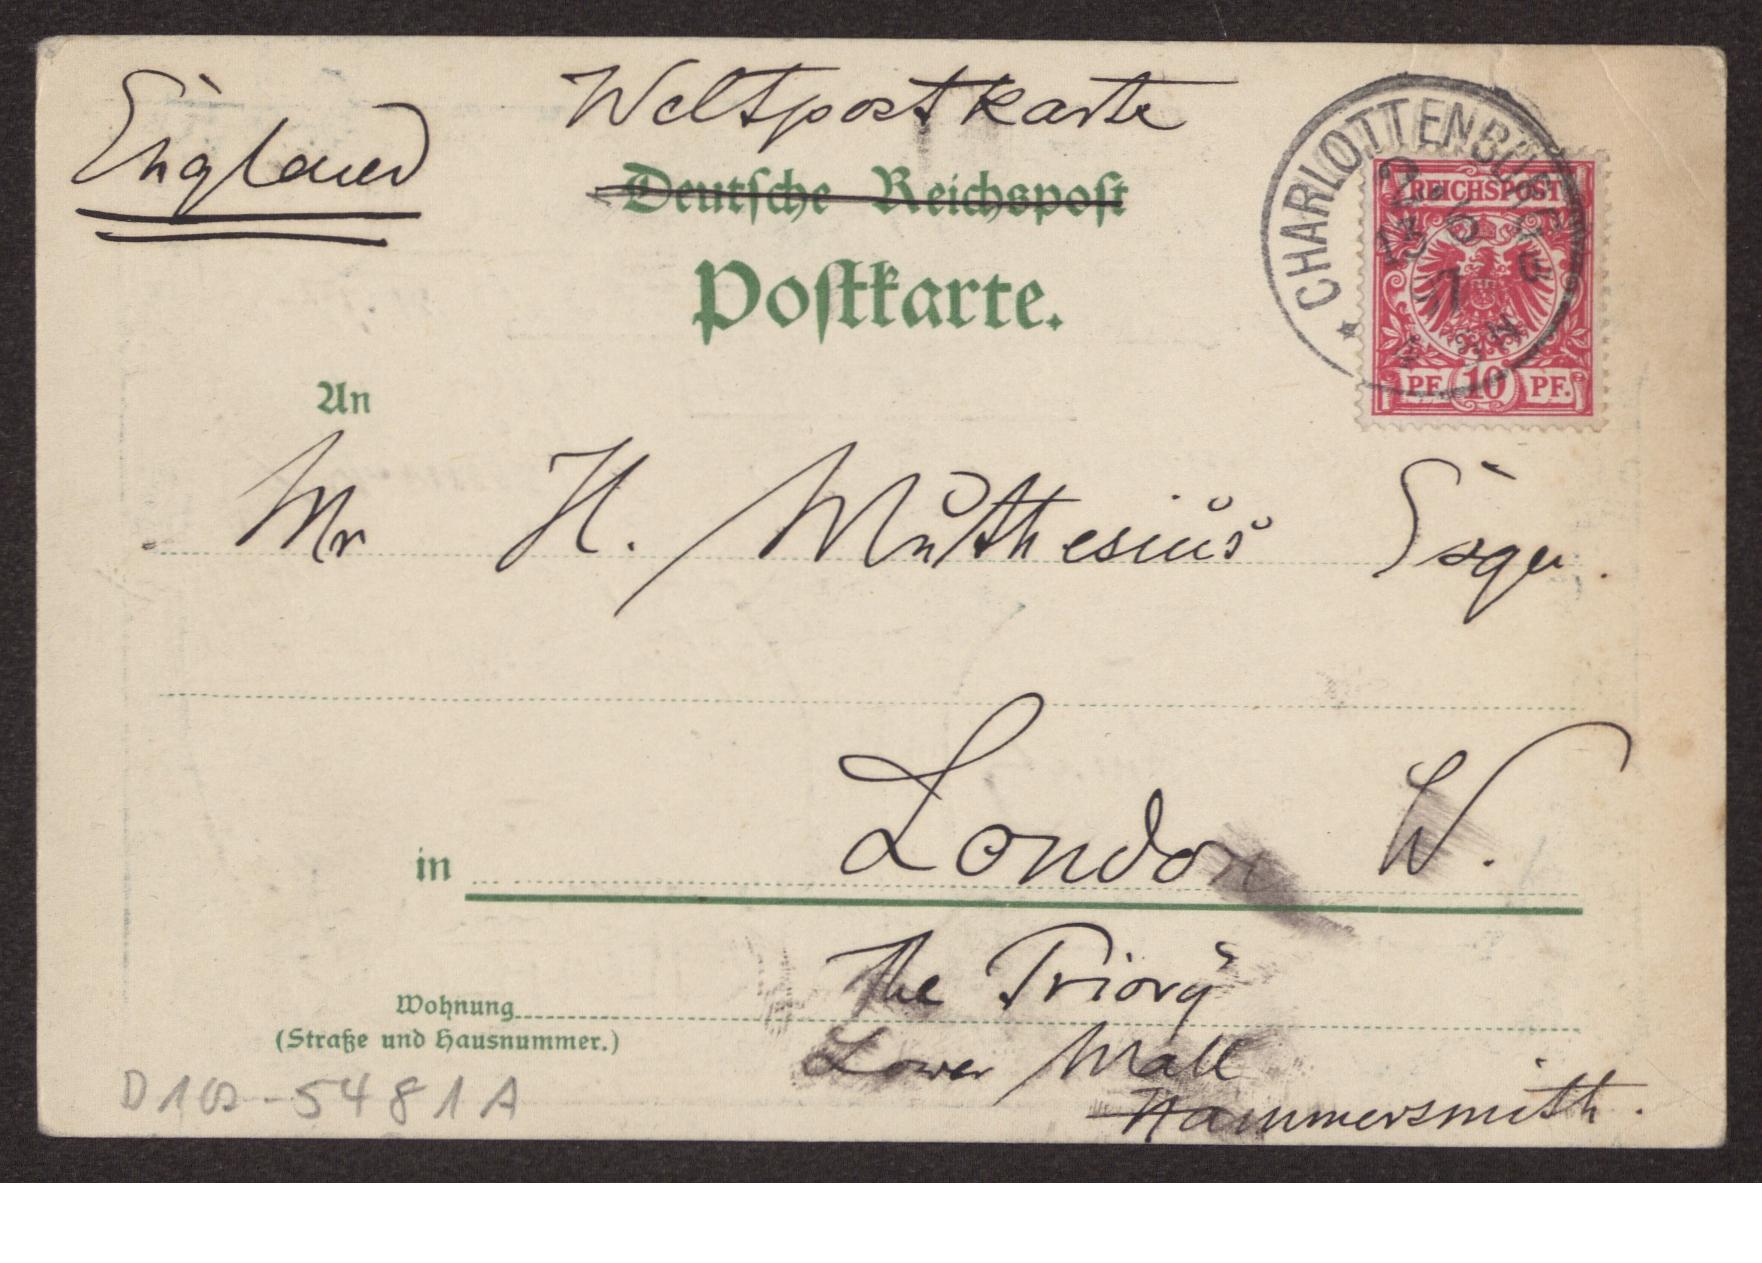 England
Weltpostkarte
Deutsche Reichspost
Postkarte.
CHARLOTTENBURG
REICHSPOST
PF. 10 PF.
An
Mr H. Muthesius Esqu.
in London W.
The Priory
Wohnung
(Straße und Hausnummer.)
Lower Mall
Hammersmith.
D102-5481A